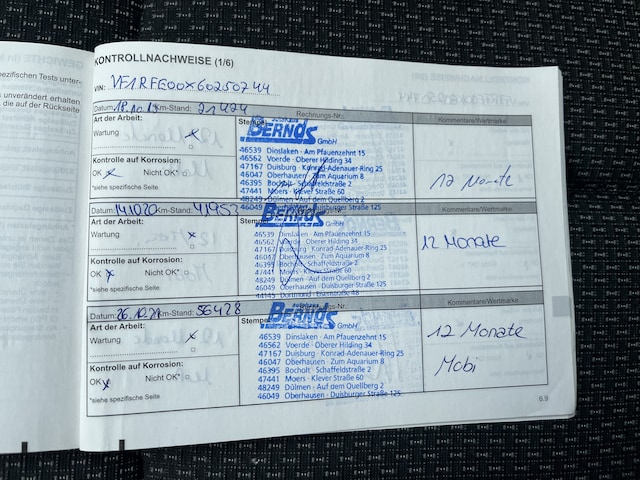 KONTROLLNACHWEISE (1/6)
VIN: VF1RFE00X60250744
pezifischen Tests unter-
unverändert erhalten
die auf der Rückseite
Datum: Km-Stand: 21424
Rechnungs-Nr.:
Kommentare/Wertmarke
Art der Arbeit:
Wartung
Stempel
BERNDS GmbH
46539 Dinslaken · Am Pfauenzehnt 15
46562 Voerde · Oberer Hilding 34
47167 Duisburg · Konrad-Adenauer-Ring 25
46047 Oberhausen · Zum Aquarium 8
46395 Bocholt · Schaffeldstraße 2
47441 Moers · Klever Straße 60
48249 Dülmen · Auf dem Quellberg 2
46049 Oberhausen · Duisburger Straße 125
Kontrolle auf Korrosion:
OK Nicht OK*
*siehe spezifische Seite
12 Monate
Datum: Km-Stand: 41957
Kommentare/Wertmarke
Art der Arbeit:
Wartung
BERNDS GmbH
46539 Dinslaken · Am Pfauenzehnt 15
46562 Voerde · Oberer Hilding 34
47167 Duisburg · Konrad-Adenauer-Ring 25
46047 Oberhausen · Zum Aquarium 8
46395 Bocholt · Schaffeldstraße 2
47441 Moers · Klever Straße 60
48249 Dülmen · Auf dem Quellberg 2
46049 Oberhausen · Duisburger Straße 125
44145 Dortmund
Kontrolle auf Korrosion:
OK Nicht OK*
*siehe spezifische Seite
12 Monate
Datum: 26.10.21 Km-Stand: 56428
Kommentare/Wertmarke
Art der Arbeit:
Wartung
Stempel
BERNDS GmbH
46539 Dinslaken · Am Pfauenzehnt 15
46562 Voerde · Oberer Hilding 34
47167 Duisburg · Konrad-Adenauer-Ring 25
46047 Oberhausen · Zum Aquarium 8
46395 Bocholt · Schaffeldstraße 2
47441 Moers · Klever Straße 60
48249 Dülmen · Auf dem Quellberg 2
46049 Oberhausen · Duisburger Straße 125
Kontrolle auf Korrosion:
OK Nicht OK*
*siehe spezifische Seite
12 Monate
Mobi
6.9